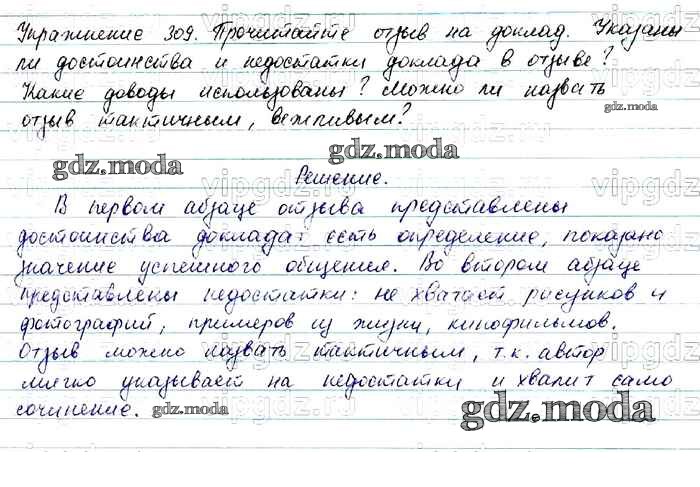 Упражнение 309. Прочитайте отзыв на доклад. Указаны
ли достоинства и недостатки доклада в отзыве?
Какие доводы использованы? Можно ли назвать
отзыв тактичным, вежливым?
Решение.
В первом абзаце отзыва представлены
достоинства доклада: есть определение, показано
значение успешного общения. Во втором абзаце
представлены недостатки: не хватает рисунков и
фотографий, примеров из жизни, кинофильмов.
Отзыв можно назвать тактичным, т.к. автор
мягко указывает на недостатки и хвалит само
сочинение.
gdz.moda
gdz.moda
gdz.moda
gdz.moda
gdz.moda
vipgdz.ru